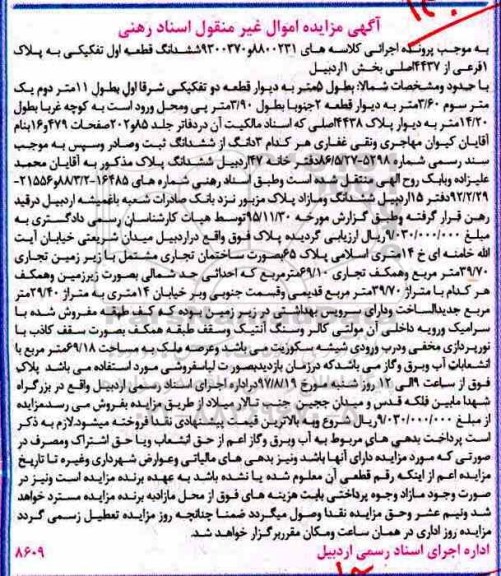 آگهی مزایده اموال غیر منقول اسناد رهنی
به موجب پرونده اجرائی کلاسه های ۸۸۰۰۲۳۱و۹۳۰۰۳۷۰ششدانگ قطعه اول تفکیکی به پلاک
۱فرعی از ۴۴۳۷اصلی بخش ۱اردبیل
با حدود ومشخصات شمالا: بطول ۵متر به دیوار قطعه دو تفکیکی شرقا اول بطول ۱۱متر دوم یک
متر سوم ۳/۶۰متر به دیوار قطعه ۲جنوبا بطول ۳/۹۰متر پی ومحل ورود است به کوچه غربا بطول
۱۴/۲۰متر به دیوار پلاک ۴۴۳۸اصلی که اسناد مالکیت آن دردفاتر جلد ۸۵و۲۰۲صفحات ۴۷۹و۱۶بنام
آقایان کیوان مهاجری ونقی غفاری هر کدام ۳دانگ از ششدانگ ثبت وصادر وسپس به موجب
سند رسمی شماره ۵۲۹۸-۸۶/۵/۲۷دفتر خانه ۴۷اردبیل ششدانگ پلاک مذکور به آقایان محمید
علیزاده وبابک روح الهی منتقل شده است وطبق اسناد رهنی شماره های ۱۶۴۸۵-۸۸/۳/۲و۲۱۵۵۶-
۹۲/۲/۲۹دفتر ۱۵اردبیل ششدانگ ومازاد پلاک مزبور نزد بانک صادرات شعبه باغمیشه اردبیل درقید
رهن قرار گرفته وطبق گزارش مورخه ۹۵/۱۱/۳۰توسط هیات کارشناسان رسمی دادگستری به
مبلغ ۹/۰۳۰/۰۰۰/۰۰۰ریال ارزیابی گردیده پلاک فوق واقع دراردبیل میدان شریعتی خیابان آیت
الله خامنه ای خ ۱۴متری اسلامی پلاک ۶۵بصورت ساختمان تجاری مشتمل با زیر زمین تجاری
۳۹/۷۰متر مربع وهمکف تجاری ۶۹/۱۰مترمربع که احداثی حد شمالی بصورت زیرزمین وهمکف
هر کدام با متراژ ۳۹/۷۰متر مربع قدیمی وقسمت جنوبی وبر خیابان ۱۴متری به متراژ ۲۹/۴۰متر
مربع جدیدالساخت ودارای سرویس بهداشتی در زیر زمین بوده که کف طبقه مفروش شده با
سرامیک ورویه داخلی آن مولتی کالر وسنگ آنتیک وسقف طبقه همکف بصورت سقف کاذب با
نورپردازی مخفی ودرب ورودی شیشه سکوریت می باشد وعرصه ملک به مساحت ۶۹/۱۸متر مربع با
انشعابات آب وبرق وگاز می باشدکه درزمان بازدیدبصورت لباسفروشی مورد استفاده می باشد پلاک
فوق از ساعت ۹الی ۱۲ روز شنبه مورخ ۹۷/۸/۱۹دراداره اجرای اسناد رسمی اردبیل واقع در بزرگراه
شهدا مابین فلکه قدس و میدان ججین جنب تالار میلاد از طریق مزایده بفروش می رسدمزایده
از مبلغ ۹/۰۳۰/۰۰۰/۰۰۰ریال شروع وبه بالاترین قیمت پیشنهادی نقدا فروخته میشود.لازم به ذکر
است پرداخت بدهی های مربوط به آب وبرق وگاز اعم از حق انشعاب ویا حق اشتراک ومصرف در
صورتی که مورد مزایده دارای آنها باشد ونیز بدهی های مالیاتی وعوارض شهرداری وغیره تا تاریخ
مزایده اعم از اینکه رقم قطعی آن معلوم شده یا نشده باشد به عهده برنده مزایده است ونیز در
صورت وجود مازاد وجوه پرداختی بابت هزینه های فوق از محل مازادبه برنده مزایده مسترد خواهد
شد ونیم عشر وحق مزایده نقدا وصول میگردد ضمنا چنانچه روز مزایده تعطیل رسمی گردد
مزایده روز اداری در همان ساعت ومکان مقرربرگزار خواهد شد.
اداره اجرای اسناد رسمی اردبیل ۸۶۰۹